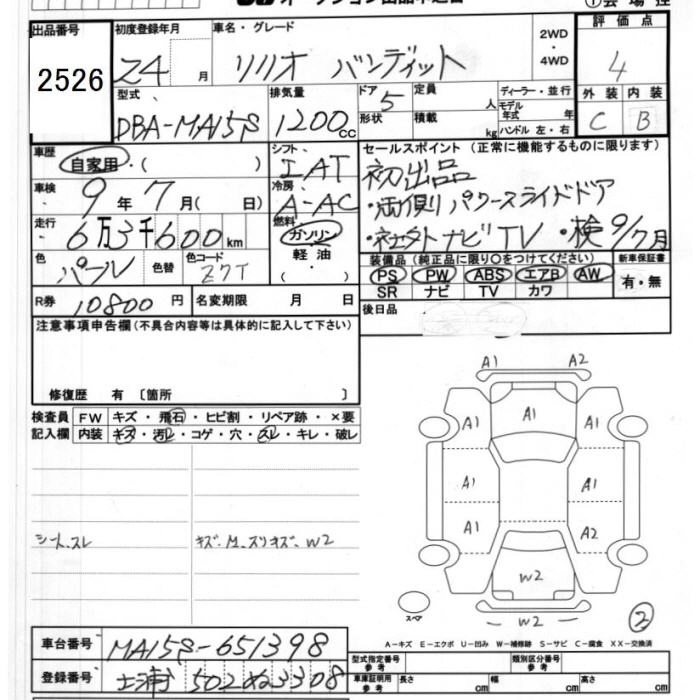 出品番号 初度登録年月 車名・グレード 2WD・4WD 評価点
2526 24 月 ソリオ バンディット 4
型式 排気量 ドア 定員 人 ディーラー・並行 外装 内装
DBA-MA15S 1200cc 5 形状 積載 kg モデル年式 年 ハンドル 左・右 C B
車歴 自家用・( ) シフト IAT セールスポイント(正常に機能するものに限ります)
車検 9年7月( 日) 冷房 A-AC 初出品
走行 6万3千600km 燃料 ガソリン 軽油・( ) ・両側パワースライドドア
色 パール 色替 色コード Z7T ・社外ナビTV ・検9/7月
装備品(純正品に限り○をつけてください) 新車保証書
PS PW ABS エアB AW 有・無
SR ナビ TV カワ
R券 10800円 名変期限 月 日 後日品
注意事項申告欄(不具合内容等は具体的に記入して下さい)
修復歴 有 〔箇所 〕
検査員 FW キズ・飛石・ヒビ割・リペア跡・×要
記入欄 内装 キズ・汚レ・コゲ・穴・スレ・キレ・破レ
シート、スレ キズ.M.スリキズ.W2
A1 A2
A1 A1 A1
A1 A1
A1 A2
W2
スペア W2 ②
A-キズ E-エクボ U-凹み W-補修跡 S-サビ C-腐食 XX-交換済
車台番号 MA15S-651398 型式指定番号 参考 類別区分番号 参考
登録番号 土浦 502ぬ3308 車庫証明用 参考 長さ cm 幅 cm 高さ cm